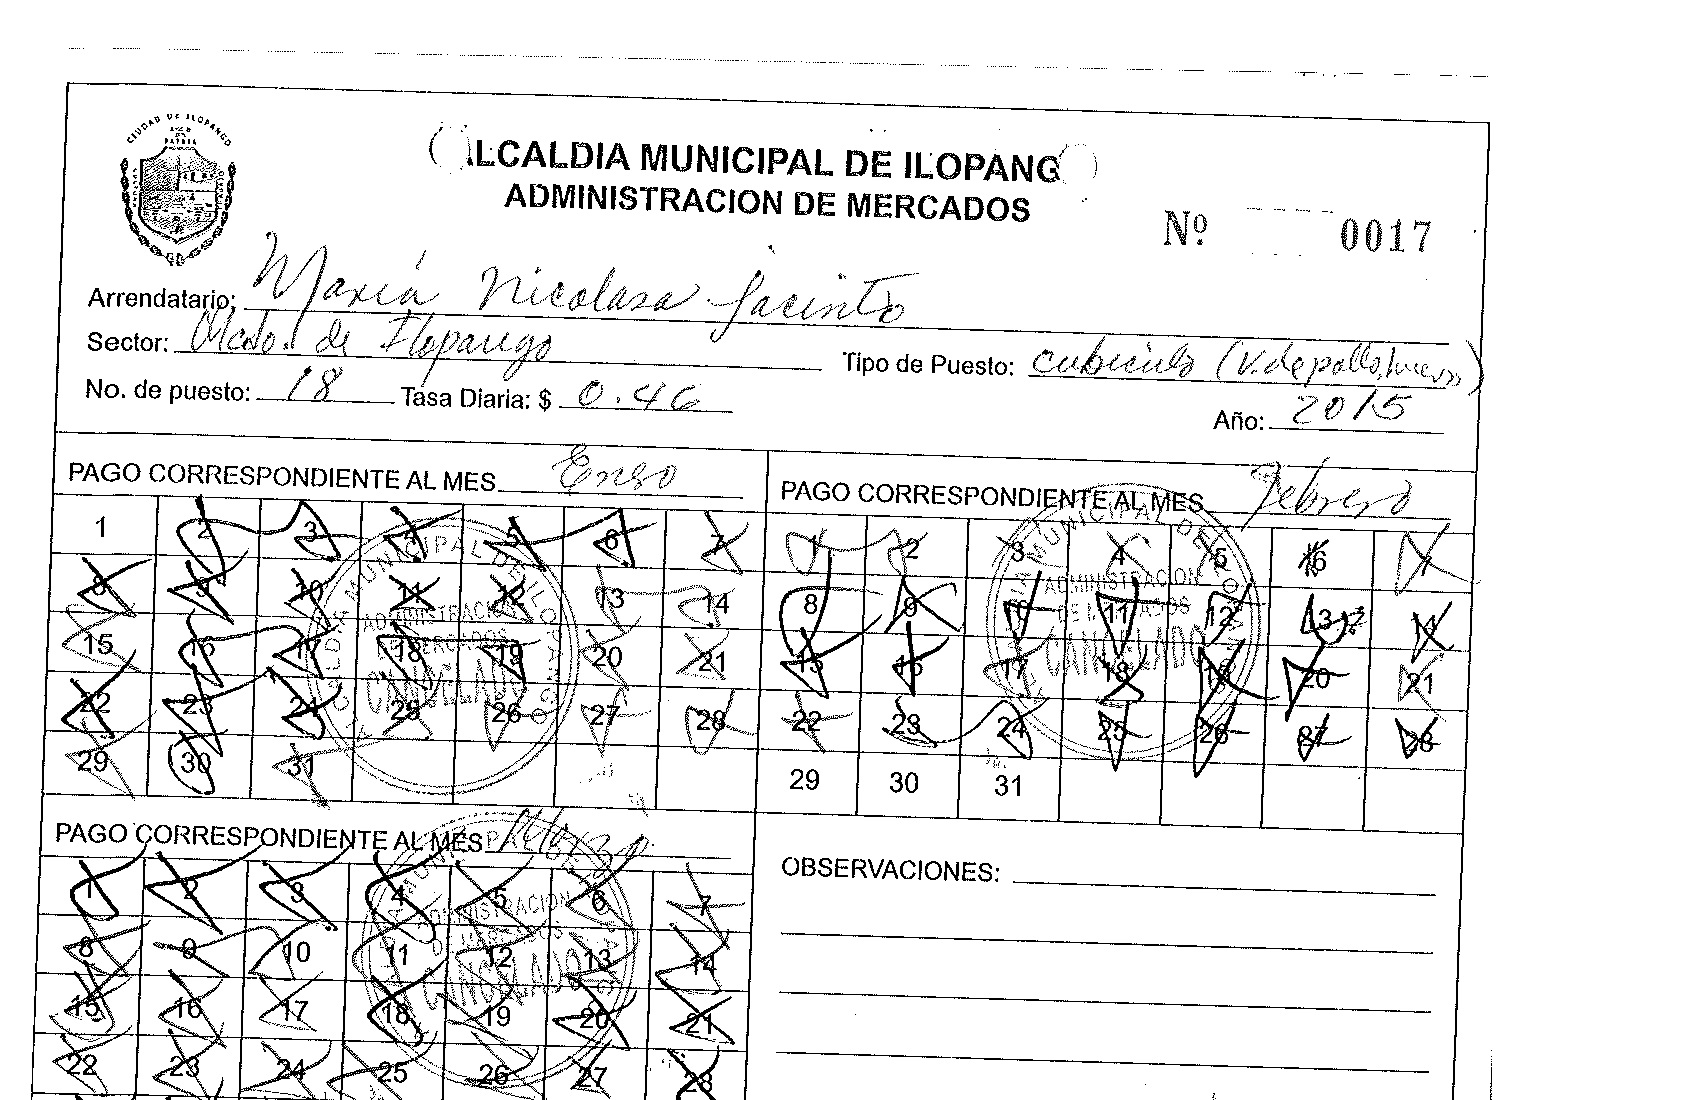 CIUDAD DE ILOPANGO
ALCALDIA MUNICIPAL DE ILOPANGO
ADMINISTRACION DE MERCADOS
Nº 0017
Arrendatario: Maria Nicolasa Jacinto
Sector: Mcdo. de Ilopango
Tipo de Puesto: cubiculo (V. de pollo, huevos)
No. de puesto: 18 Tasa Diaria: $ 0.46
Año: 2015
PAGO CORRESPONDIENTE AL MES Enero
1 2 3 4 5 6 7
8 9 10 11 12 13 14
15 16 17 18 19 20 21
22 23 24 25 26 27 28
29 30 31
ADMINISTRACION
DE MERCADOS
CANCELADO
PAGO CORRESPONDIENTE AL MES Febrero
1 2 3 4 5 6 7
8 9 10 11 12 13 14
15 16 17 18 19 20 21
22 23 24 25 26 27 28
29 30 31
ADMINISTRACION
DE MERCADOS
CANCELADO
PAGO CORRESPONDIENTE AL MES Marzo
1 2 3 4 5 6 7
8 9 10 11 12 13 14
15 16 17 18 19 20 21
22 23 24 25 26 27 28
ADMINISTRACION
DE MERCADOS
CANCELADO
OBSERVACIONES: